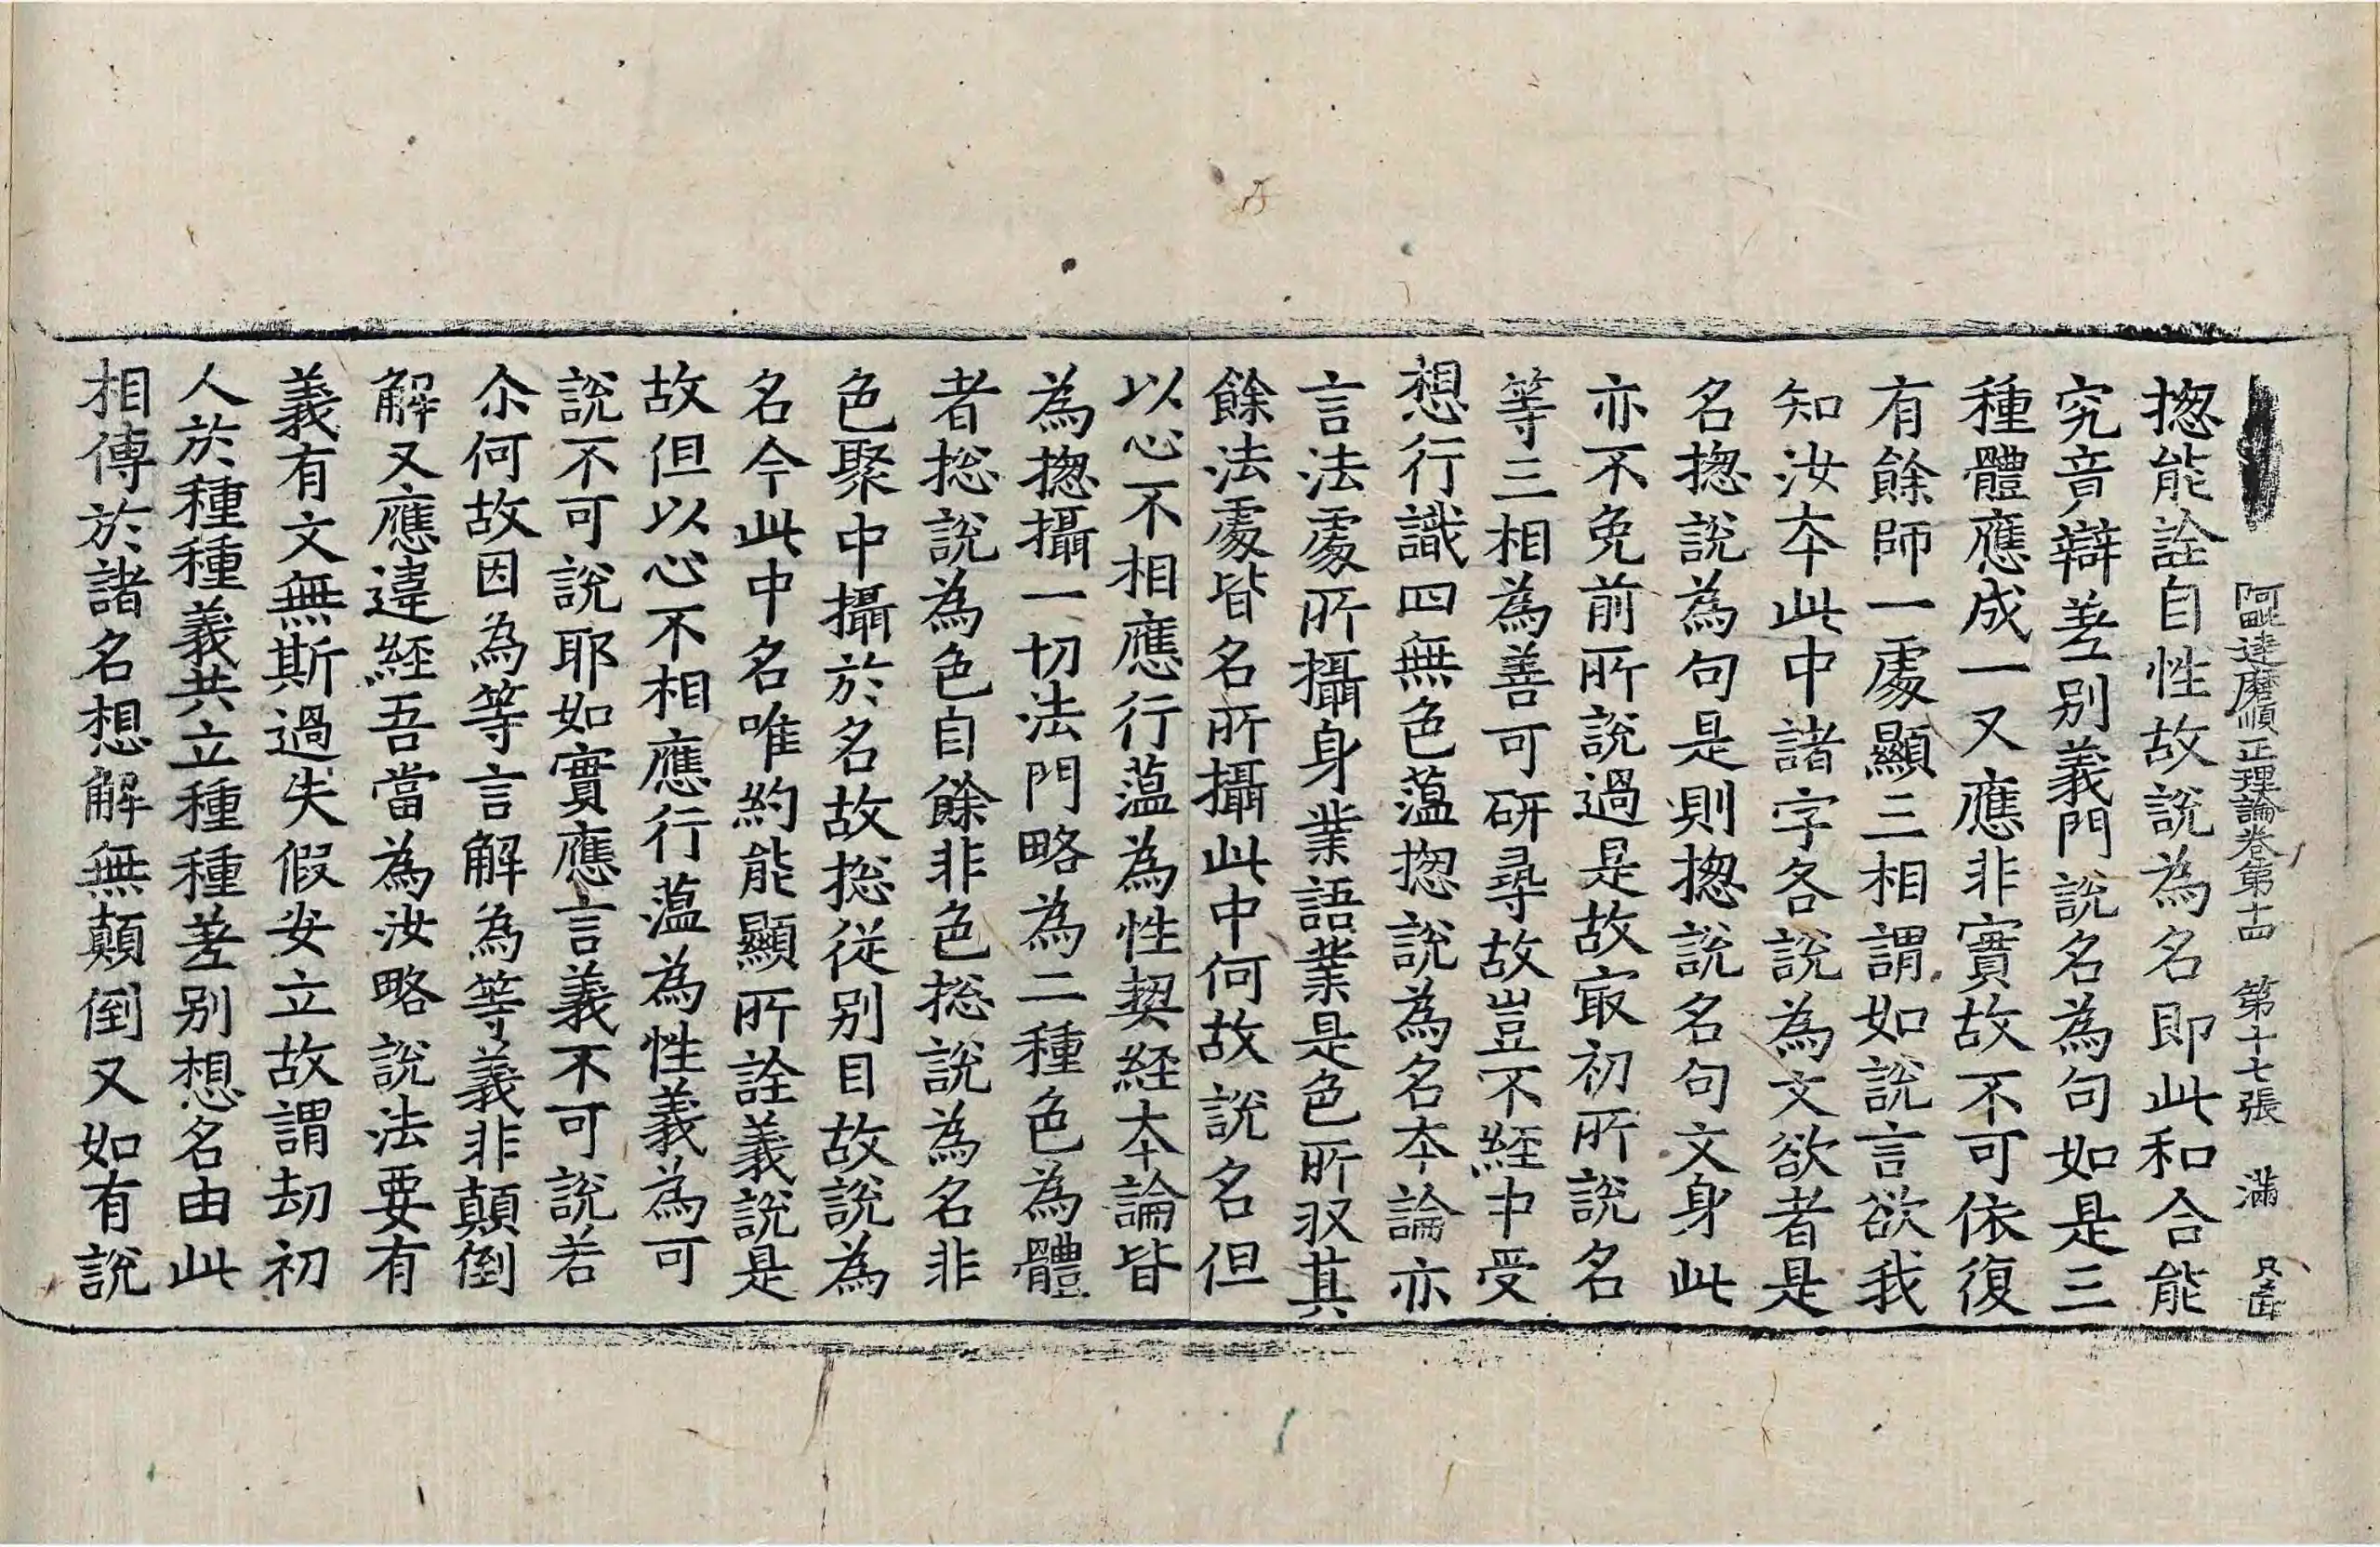 阿毗達磨順正理論卷第十四　第十七張　滿
揔能詮自性故說為名即此和合能
究竟辯差别義門說名為句如是三
種體應成一又應非實故不可依復
有餘師一處顯三相謂如說言欲我
知汝本此中諸字各說為文欲者是
名揔說為句是則揔說名句文身此
亦不免前所說過是故㝡初所說名
等三相為善可研尋故豈不經中受
想行識四無色蘊揔說為名本論亦
言法處所攝身業語業是色所收其
餘法處皆名所攝此中何故說名但
以心不相應行蘊為性契經本論皆
為揔攝一切法門略為二種色為體
者捴說為色自餘非色捴說為名非
色聚中攝於名故捴從别目故說為
名今此中名唯約能顯所詮義說是
故但以心不相應行蘊為性義為可
說不可說耶如實應言義不可說若
尒何故因為等言解為等義非顛倒
解又應違經吾當為汝略說法要有
義有文無斯過失假安立故謂劫初
人於種種義共立種種差别想名由此
相傳於諸名想解無顛倒又如有說